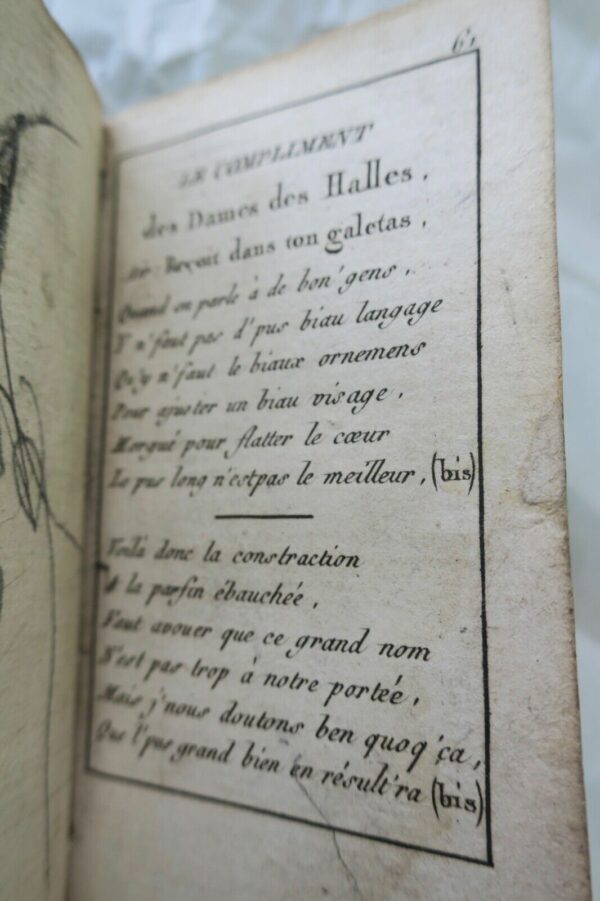 61
LE COMPLIMENT
des Dames des Halles,
Air: Reçoit dans ton galetas,
Quand on parle à de bon'gens,
Y n'faut pas d'pus biau langage
Qu'y n'faut le biaux ornemens
Pour ajuster un biau visage,
Morgué pour flatter le cœur
Le pus long n'estpas le meilleur, (bis)
Voilà donc la constraction
A la parfin ébauchée,
Faut avouer que ce grand nom
N'est pas trop à notre portéé,
Mais j'nous doutons ben quoq'ça,
Que l'pus grand bien en résult'ra (bis)